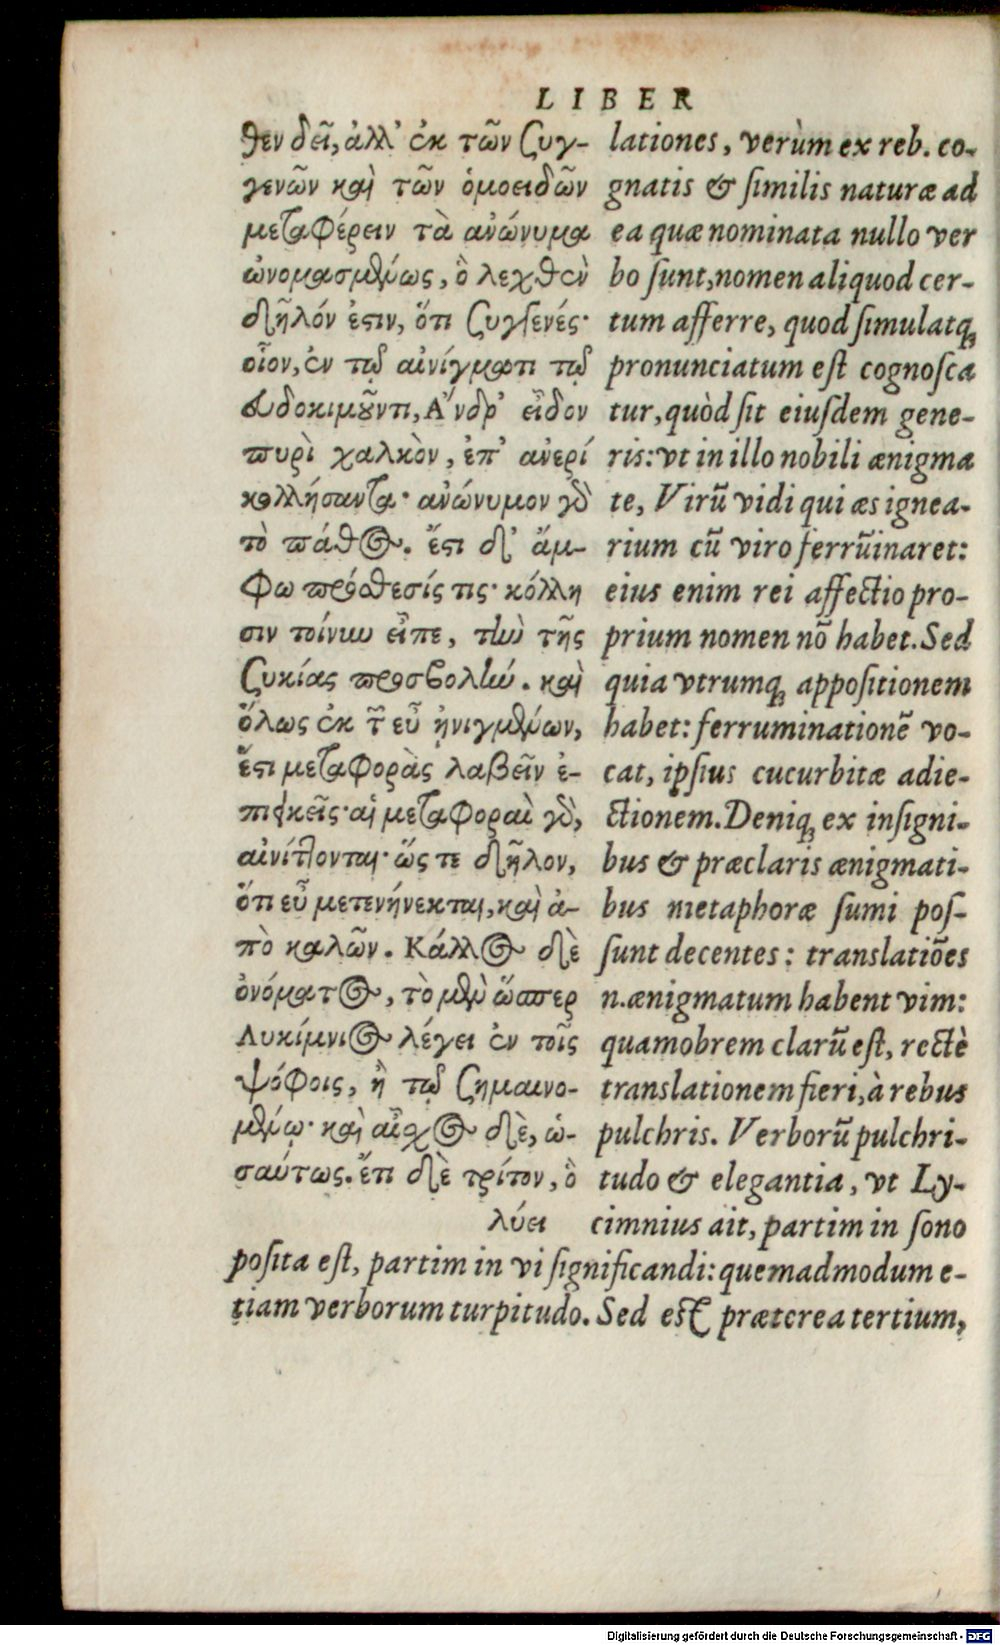 LIBER
θεν δεῖ, ἀλλ' ἐκ τῶν συγ-
γενῶν καὶ τῶν ὁμοειδῶν
μεταφέρειν τὰ ἀνώνυμα
ὠνομασμένως, ὃ λεχθὲν
δῆλόν ἐστιν, ὅτι συγγενές·
οἷον, ἐν τῷ αἰνίγματι τῷ
εὐδοκιμοῦντι, Ἄνδρ' εἶδον
πυρὶ χαλκὸν, ἐπ' ἀνερί
κολλήσαντα· ἀνώνυμον γὰρ
τὸ πάθος. ἔστι δ' ἄμ-
φω πρόσθεσίς τις· κόλλη
σιν τοίνυν εἶπε, τὴν τῆς
συκίας προσβολήν. καὶ
ὅλως ἐκ τῶν εὖ ᾐνιγμένων,
ἔστι μεταφορὰς λαβεῖν ἐ-
πιεικεῖς· αἱ μεταφοραὶ γὰρ,
αἰνίττονται· ὥς τε δῆλον,
ὅτι εὖ μετενήνεκται, καὶ ἀ-
πὸ καλῶν. Κάλλος δὲ
ὀνόματος, τὸ μὲν ὥσπερ
Λυκίμνιος λέγει ἐν τοῖς
ψόφοις, ἢ τῷ σημαινο-
μένῳ· καὶ αἶσχος δὲ, ὡ-
σαύτως. ἔτι δὲ τρίτον, ὃ
λύει
lationes, verùm ex reb. co-
gnatis & similis naturæ ad
ea quæ nominata nullo ver
bo sunt, nomen aliquod cer-
tum afferre, quod simulatq;
pronunciatum est cognosca
tur, quòd sit eiusdem gene-
ris: vt in illo nobili ænigma
te, Virũ vidi qui æs ignea-
rium cũ viro ferrũinaret:
eius enim rei affectio pro-
prium nomen nõ habet. Sed
quia vtrumq; appositionem
habet: ferruminationẽ vo-
cat, ipsius cucurbitæ adie-
ctionem. Deniq; ex insigni-
bus & præclaris ænigmati-
bus metaphoræ sumi pos-
sunt decentes: translatiões
n. ænigmatum habent vim:
quamobrem clarũ est, rectè
translationem fieri, à rebus
pulchris. Verborũ pulchri-
tudo & elegantia, vt Ly-
cimnius ait, partim in sono
posita est, partim in vi significandi: quemadmodum e-
tiam verborum turpitudo. Sed est præterea tertium,
Digitalisierung gefördert durch die Deutsche Forschungsgemeinschaft - DFG